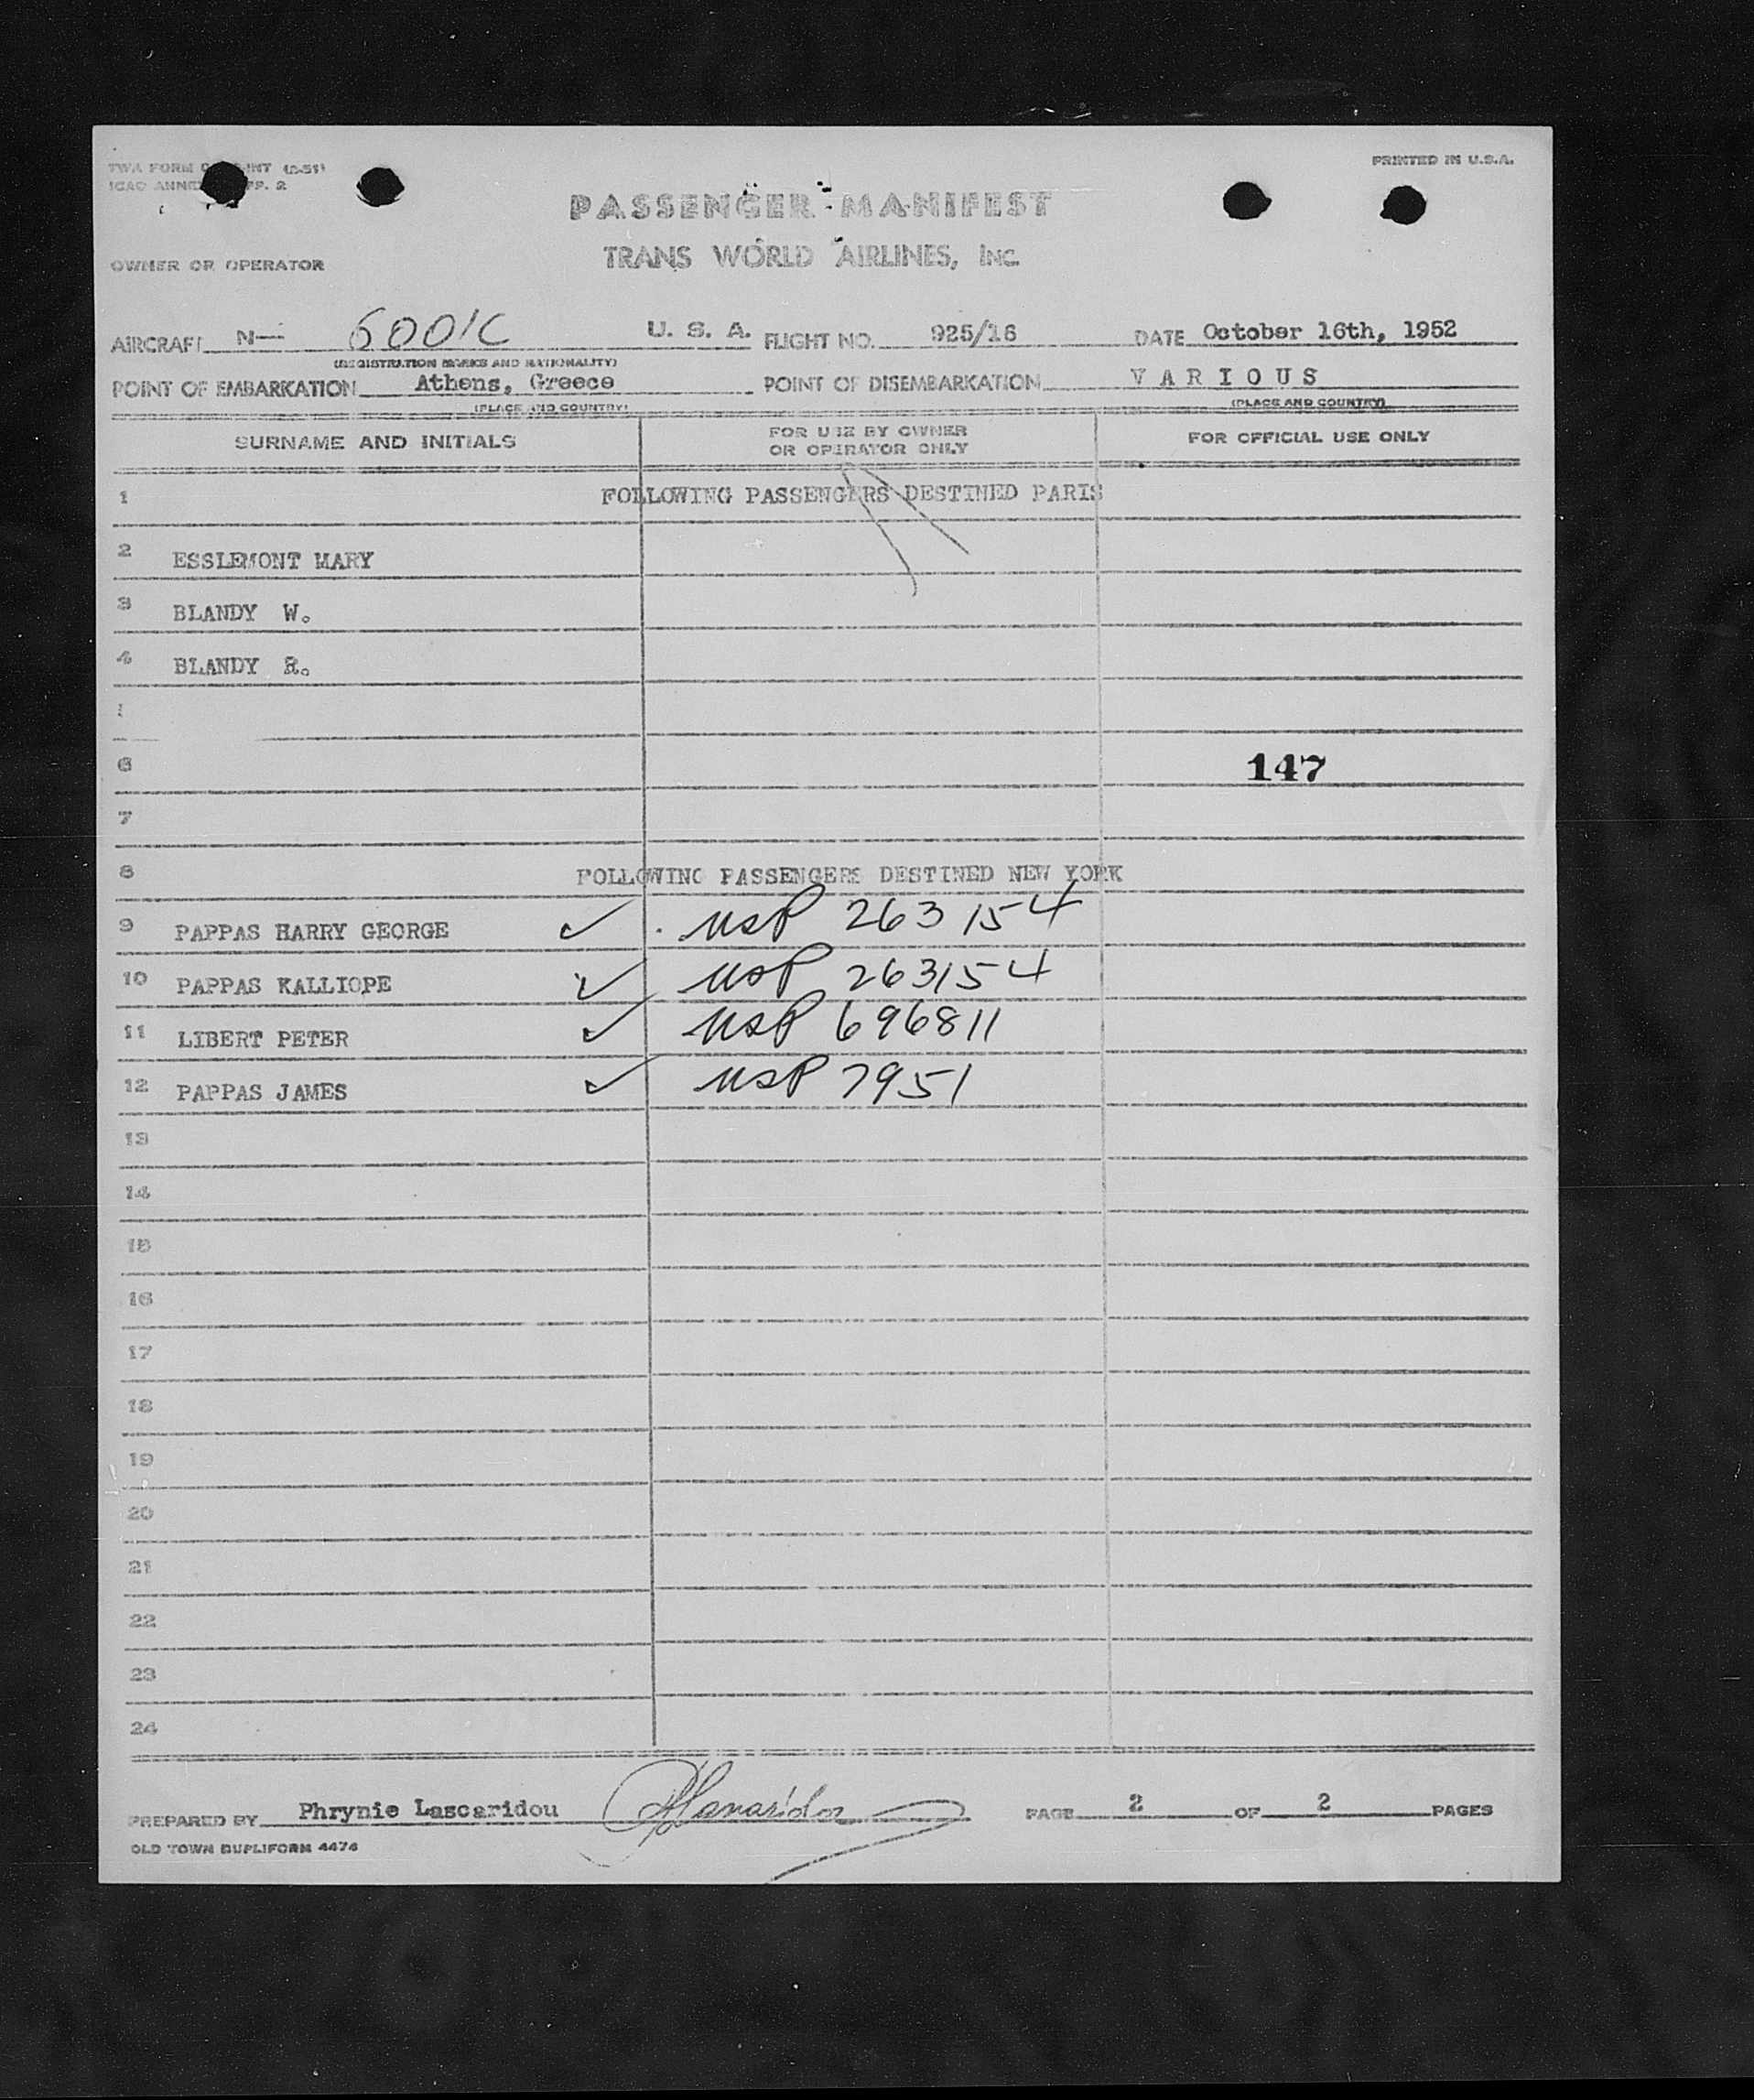 TWA FORM INT (2-51)
ICAO ANNEX PP. 2
PRINTED IN U.S.A.
PASSENGER MANIFEST
TRANS WORLD AIRLINES, INC.
OWNER OR OPERATOR
AIRCRAFT N— 6001C U. S. A. FLIGHT NO. 925/16 DATE October 16th, 1952
(REGISTRATION MARKS AND NATIONALITY)
POINT OF EMBARKATION Athens, Greece POINT OF DISEMBARKATION V A R I O U S
(PLACE AND COUNTRY) (PLACE AND COUNTRY)
SURNAME AND INITIALS FOR USE BY OWNER OR OPERATOR ONLY FOR OFFICIAL USE ONLY
1 FOLLOWING PASSENGERS DESTINED PARIS
2 ESSLEMONT MARY
3 BLANDY W.
4 BLANDY R.
6 147
7
8 FOLLOWING PASSENGERS DESTINED NEW YORK
9 PAPPAS HARRY GEORGE ✓ USP 263154
10 PAPPAS KALLIOPE ✓ USP 263154
11 LIBERT PETER ✓ USP 696811
12 PAPPAS JAMES ✓ USP 7951
13
14
15
16
17
18
19
20
21
22
23
24
PREPARED BY Phrynie Lascaridou PAGE 2 OF 2 PAGES
OLD TOWN DUPLIFORM 4474